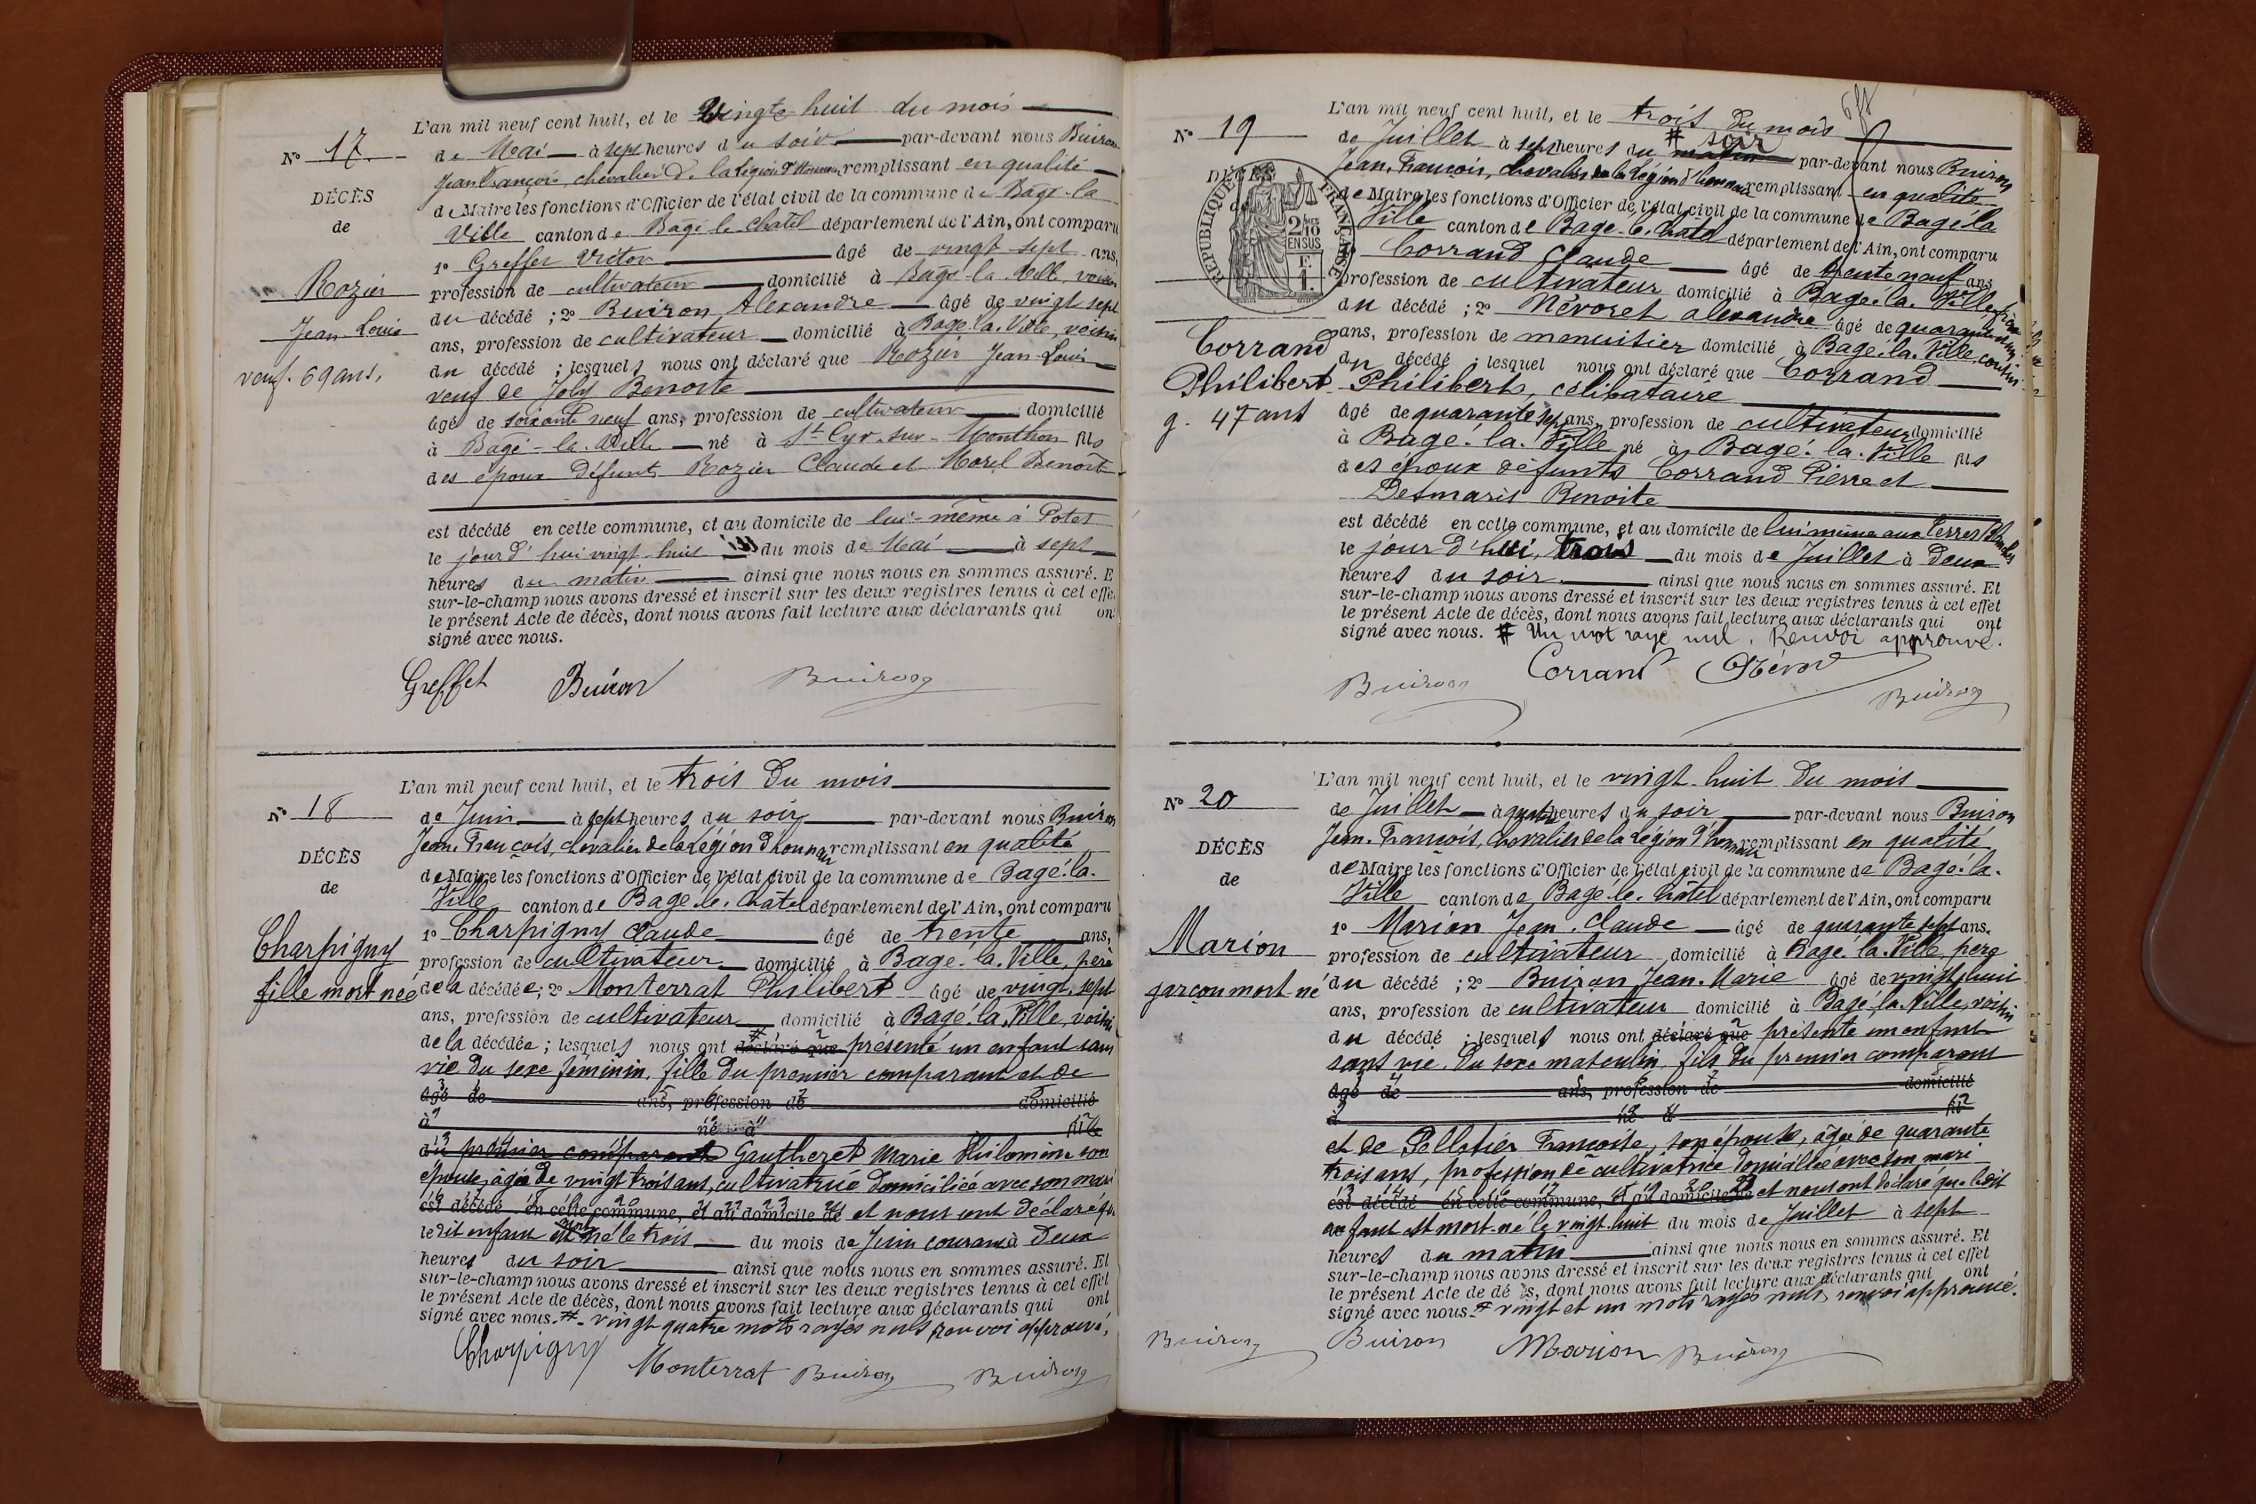 N° 17.
DÉCÈS
de
Rozier
Jean Louis
veuf. 69 ans.
L'an mil neuf cent huit, et le vingt-huit du mois
de Mai à sept heures du soir par-devant nous Buiron
Jean François, chevalier de la Légion d'Honneur remplissant en qualité
de Maire les fonctions d'Officier de l'état civil de la commune de Bagé-la
Ville canton de Bagé-le-Châtel département de l'Ain, ont comparu
1° Greffet Victor âgé de vingt-sept ans,
profession de cultivateur domicilié à Bagé-la-Ville, voisin
du décédé ; 2° Buiron Alexandre âgé de vingt sept
ans, profession de cultivateur domicilié à Bagé-la-Ville, voisin
du décédé ; lesquels nous ont déclaré que Rozier Jean-Louis
veuf de Joly Benoite
âgé de soixante neuf ans, profession de cultivateur domicilié
à Bagé-la-Ville né à St Cyr-sur-Menthon fils
des époux défunts Rozier Claude et Morel Benoîte
est décédé en cette commune, et au domicile de lui-même à Potet
le jour d'hui vingt-huit du mois de Mai à sept
heures du matin ainsi que nous nous en sommes assuré. E
sur-le-champ nous avons dressé et inscrit sur les deux registres tenus à cet effe
le présent Acte de décès, dont nous avons fait lecture aux déclarants qui ont
signé avec nous.
Greffet Buiron Buiron
N° 18
DÉCÈS
de
Charpigny
fille mort née
L'an mil neuf cent huit, et le trois du mois
de Juin à sept heures du soir par-devant nous Buiron
Jean-François, chevalier de la Légion d'honneur remplissant en qualité
de Maire les fonctions d'Officier de l'état civil de la commune de Bagé-la-
Ville canton de Bagé-le-Châtel département de l'Ain, ont comparu
1° Charpigny Claude âgé de trente ans,
profession de cultivateur domicilié à Bagé-la-Ville, père
de la décédée ; 2° Monterrat Philibert âgé de vingt-sept
ans, profession de cultivateur domicilié à Bagé-la-Ville, voisin
de la décédée ; lesquels nous ont # déclaré que présenté un enfant sans
vie du sexe féminin, fille du premier comparant et de
âgé de ans, profession de domicilié
à né à fils
du premier comparant Gautheret Marie Philomène son
épouse, âgée de vingt trois ans, cultivatrice domiciliée avec son mari
est décédé en cette commune, et au domicile de et nous ont déclaré que
ledit enfant mort né le trois du mois de Juin courant à deux
heures du soir ainsi que nous nous en sommes assuré. Et
sur-le-champ nous avons dressé et inscrit sur les deux registres tenus à cet effet
le présent Acte de décès, dont nous avons fait lecture aux déclarants qui ont
signé avec nous. # vingt quatre mots rayés nuls renvoi approuvé.
Charpigny Monterrat Buiron Buiron
N° 19
DÉCÈS
RÉPUBLIQUE FRANÇAISE
2/10 EN SUS
F. 1.
Corrand
Philibert
g. 47 ans
L'an mil neuf cent huit, et le trois du mois
# soir
de Juillet à sept heures du matin par-devant nous Buiron
Jean-François, chevalier de la Légion d'honneur remplissant en qualité
de Maire les fonctions d'Officier de l'état civil de la commune de Bagé-la
Ville canton de Bagé-le-Châtel département de l'Ain, ont comparu
Corrand Claude âgé de trente neuf ans
profession de cultivateur domicilié à Bagé-la-Ville, frère
du décédé ; 2° Névoret Alexandre âgé de quarante un
ans, profession de menuisier domicilié à Bagé-la-Ville, cousin
du décédé ; lesquel nous ont déclaré que Corrand
Philibert, célibataire
âgé de quarante sept ans, profession de cultivateur domicilié
à Bagé-la-Ville né à Bagé-la-Ville fils
des époux défunts Corrand Pierre et
Desmaris Benoite
est décédé en cette commune, et au domicile de lui même aux Terres
le jour d'hui, trois du mois de Juillet à deux
heures du soir ainsi que nous nous en sommes assuré. Et
sur-le-champ nous avons dressé et inscrit sur les deux registres tenus à cet effet
le présent Acte de décès, dont nous avons fait lecture aux déclarants qui ont
signé avec nous. # Un mot rayé nul. Renvoi approuvé.
Buiron Corrand Buiron
N° 20
DÉCÈS
de
Marion
garçon mort-né
L'an mil neuf cent huit, et le vingt-huit du mois
de Juillet à quatre heures du soir par-devant nous Buiron
Jean-François, chevalier de la Légion d'honneur remplissant en qualité
de Maire les fonctions d'Officier de l'état civil de la commune de Bagé-la-
Ville canton de Bagé-le-Châtel département de l'Ain, ont comparu
1° Marion Jean-Claude âgé de quarante sept ans.
profession de cultivateur domicilié à Bagé-la-Ville, père
du décédé ; 2° Buiron Jean-Marie âgé de vingt-huit
ans, profession de cultivateur domicilié à Bagé-la-Ville, voisin
du décédé ; lesquels nous ont déclaré que présenté un enfant
sans vie du sexe masculin, fils du premier comparant
âgé de ans, profession de domicilié
à né à fils
et de Pelletier Françoise, son épouse, âgée de quarante
trois ans, profession de cultivatrice domiciliée avec son mari
est décédé en cette commune, et au domicile de et nous ont déclaré que ledit
enfant est mort-né le vingt-huit du mois de Juillet à sept
heures du matin ainsi que nous nous en sommes assuré. Et
sur-le-champ nous avons dressé et inscrit sur les deux registres tenus à cet effet
le présent Acte de décès, dont nous avons fait lecture aux déclarants qui ont
signé avec nous. # vingt et un mots rayés nuls, renvoi approuvé.
Buiron Buiron Marion Buiron